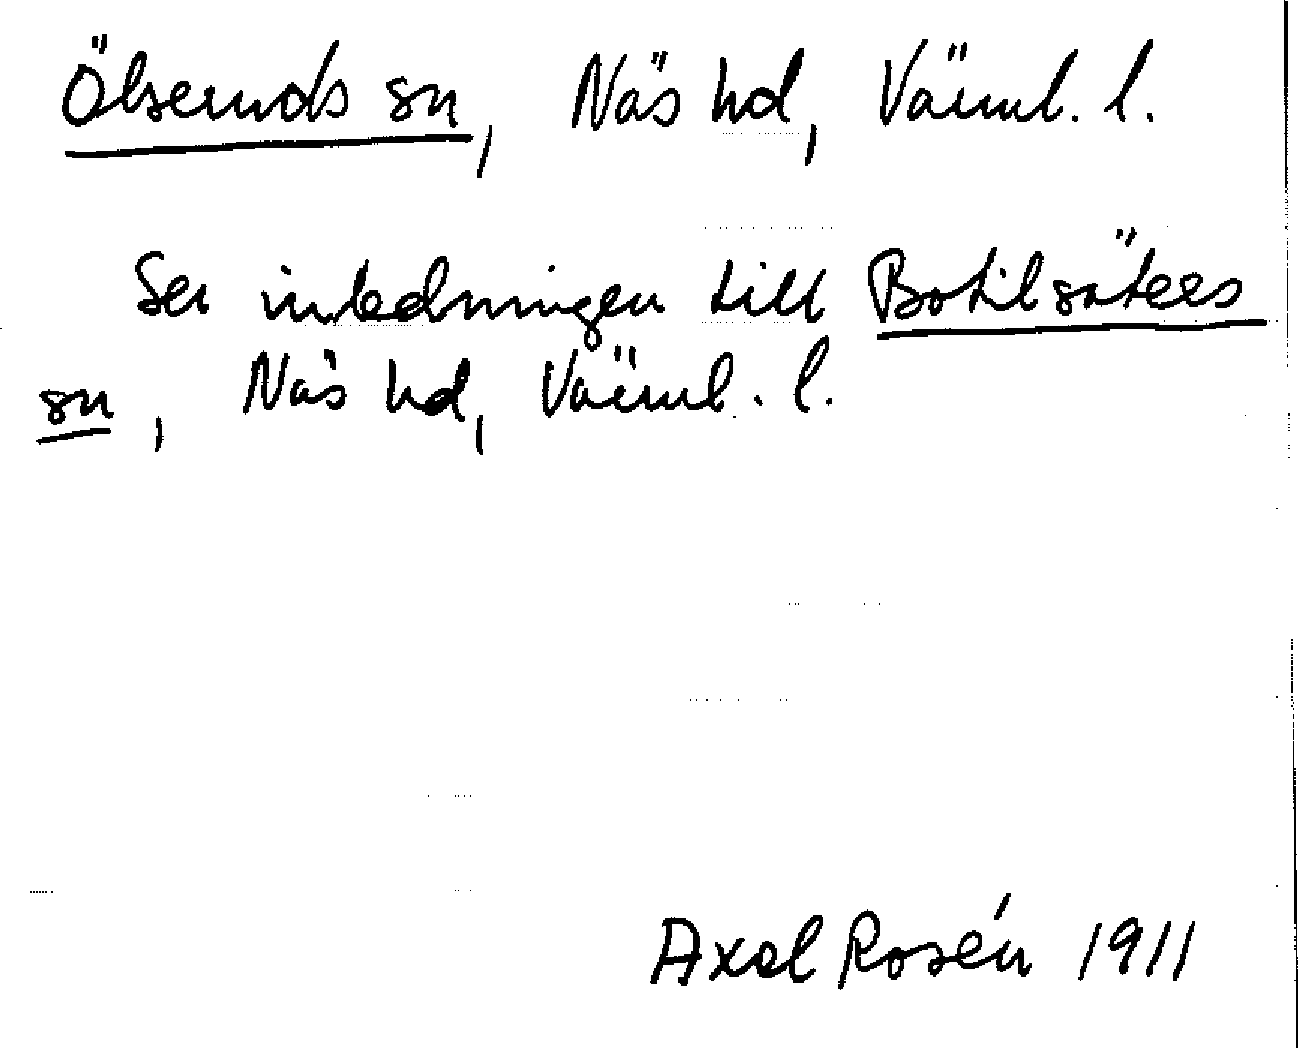 Ölseruds sn, Näs hd, Värml. l.
Se inledningen till Botilsäters
sn, Näs hd, Värml. l.
Axel Rosén 1911